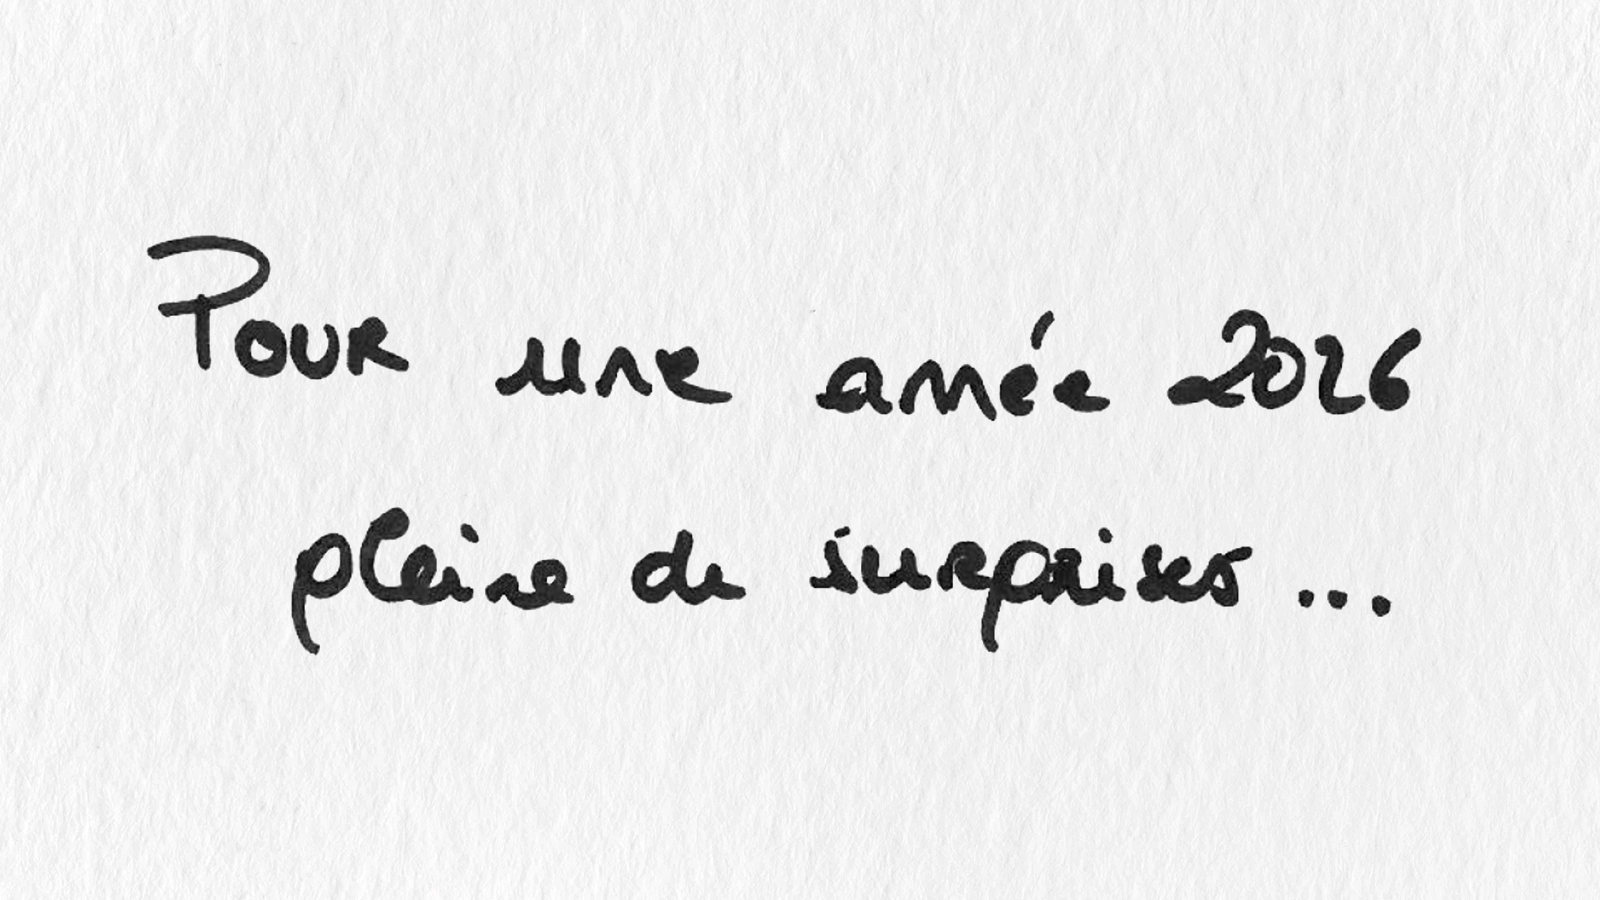 Pour une année 2026
pleine de surprises...